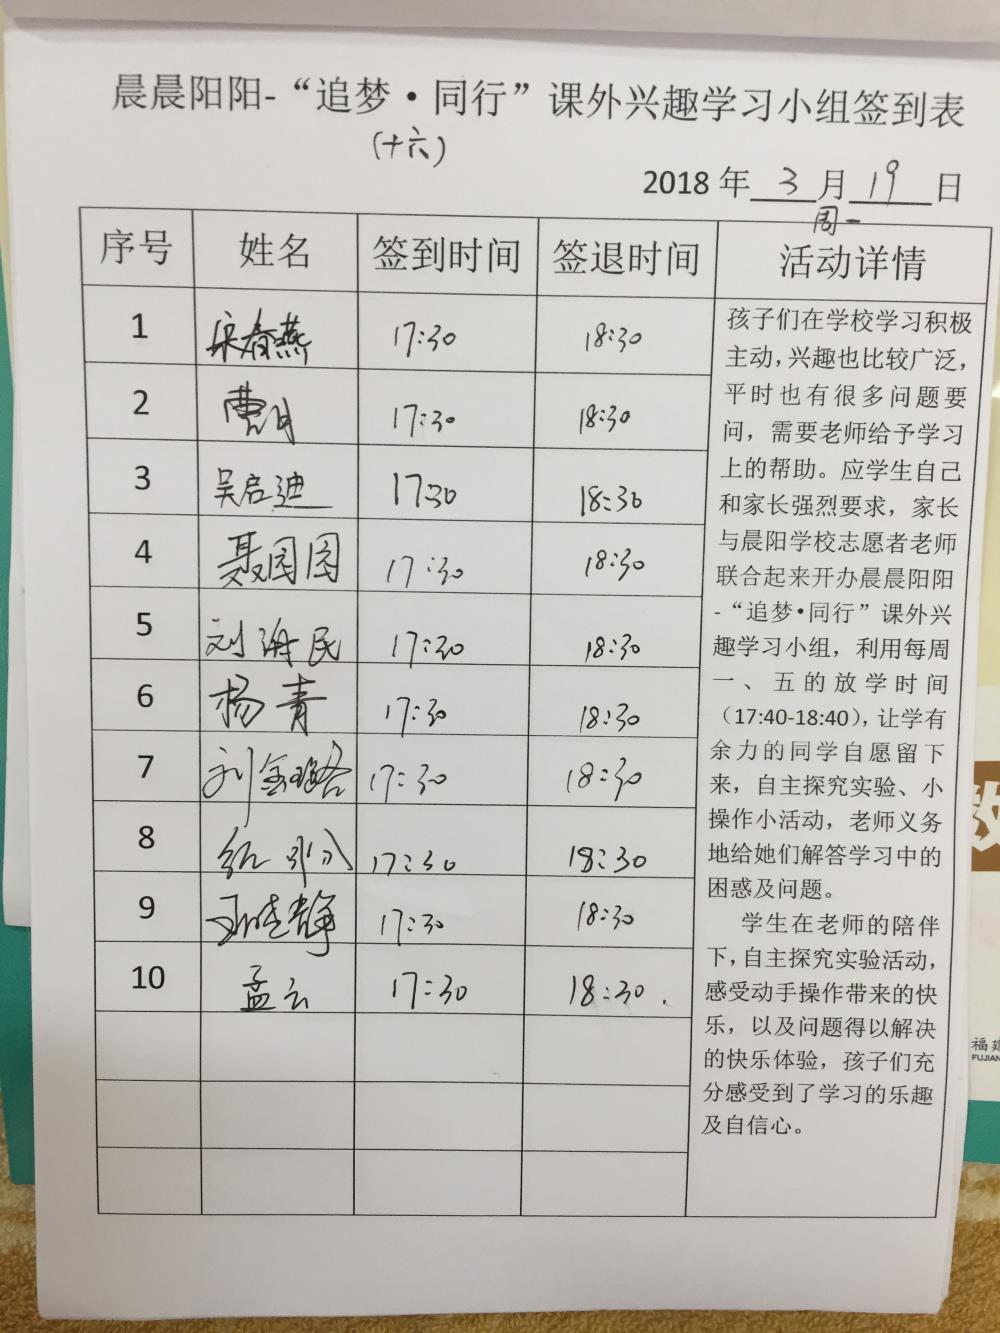 晨晨阳阳-“追梦·同行”课外兴趣学习小组签到表
(十六)
2018 年 3 月 19 日
周一
序号 姓名 签到时间 签退时间 活动详情
1 宋春燕 17:30 18:30
2 曹月 17:30 18:30
3 吴启迪 17:30 18:30
4 聂园园 17:30 18:30
5 刘海民 17:30 18:30
6 杨青 17:30 18:30
7 刘金璐 17:30 18:30
8 17:30 18:30
9 静 17:30 18:30
10 孟云 17:30 18:30.
孩子们在学校学习积极
主动，兴趣也比较广泛，
平时也有很多问题要
问，需要老师给予学习
上的帮助。应学生自己
和家长强烈要求，家长
与晨阳学校志愿者老师
联合起来开办晨晨阳阳
-“追梦•同行”课外兴
趣学习小组，利用每周
一、五的放学时间
（17:40-18:40），让学有
余力的同学自愿留下
来，自主探究实验、小
操作小活动，老师义务
地给她们解答学习中的
困惑及问题。
学生在老师的陪伴
下，自主探究实验活动，
感受动手操作带来的快
乐，以及问题得以解决
的快乐体验，孩子们充
分感受到了学习的乐趣
及自信心。
福建
FUJIAN